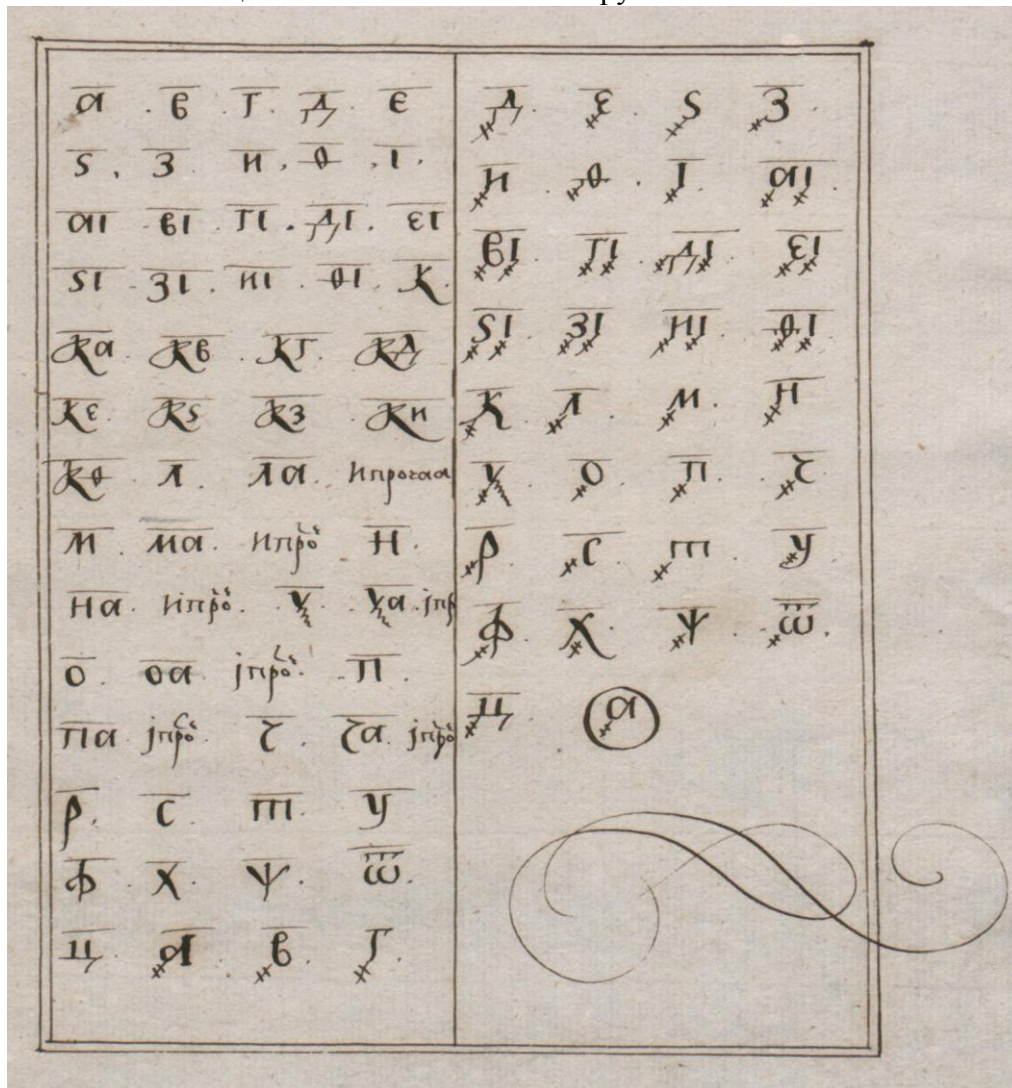 а҃ . в҃ . г҃ . д҃ . є҃
ѕ҃ . з҃ . и҃ . ѳ҃ . і҃ .
аі҃ ві҃ гі҃ . ді҃ . єі҃
ѕі҃ зі҃ . иі҃ . ѳі҃ . к҃ .
ка҃ . кв҃ . кг҃ . кд҃
кє҃ . кѕ҃ . кз҃ . ки҃
кѳ҃ . л҃ . ла҃ . ипрочаа
м҃ . ма҃ . ипро҃ч н҃ .
на҃ . ипро҃ч . ѯ҃ . ѯа҃ . јпр
о҃ . оа҃ јпро҃ч . п҃ .
па҃ . јпро҃ч . ч҃ . ча҃ . јпро҃ч
р҃ . с҃ . т҃ . у҃
ф҃ . х҃ . ѱ҃ . ѿ҃ .
ц҃ . ҂а҃ . ҂в҃ . ҂г҃ .
҂д҃ . ҂є҃ . ҂ѕ҃ ҂з҃ .
҂и҃ . ҂ѳ҃ . ҂і҃ . ҂а҂і҃
҂в҂і҃ . ҂г҂і҃ . ҂д҂і҃ . ҂є҂і҃
҂ѕ҂і҃ . ҂з҂і҃ ҂и҂і҃ . ҂ѳ҂і҃
҂к҃ . ҂л҃ . ҂м҃ . ҂н҃
҂ѯ҃ . ҂о҃ . ҂п҃ . ҂ч҃
҂р҃ . ҂с҃ . ҂т҃ . ҂у҃
҂ф҃ . ҂х҃ . ҂ѱ҃ . ҂ѿ҃ .
҂ц҃ . ҂а⃝ .